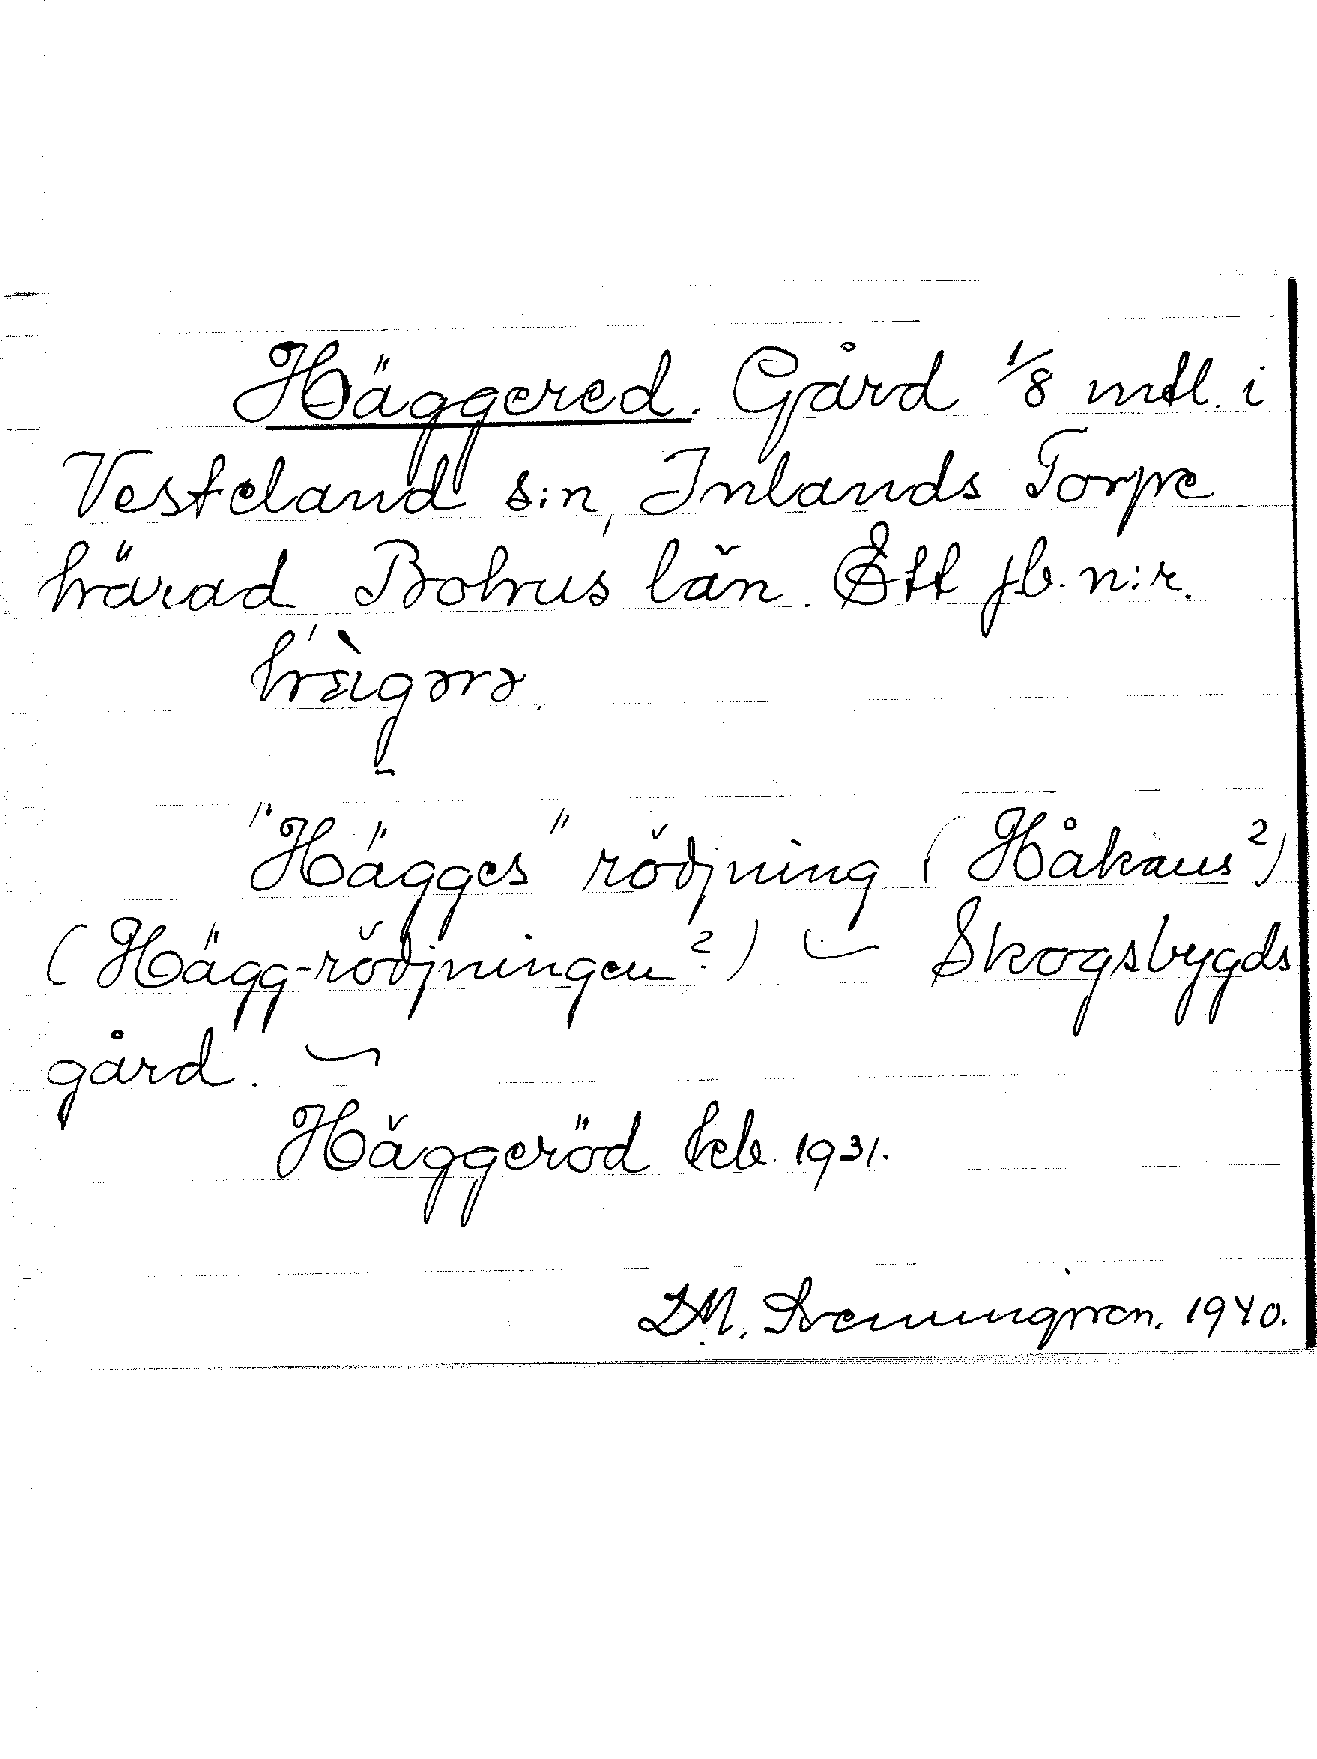 Häggered. Gård 1/8 mtl. i
Vesteland s:n, Inlands Torpe
härad Bohus län. Ett jb. n:r.
hæ̀igərə.
"Hägges" rödjning (Håkans?)
(Hägg-rödjningen?) — Skogsbygds
gård. —
Häggeröd Jeb. 1931.
D.M. Svenungsson. 1940.